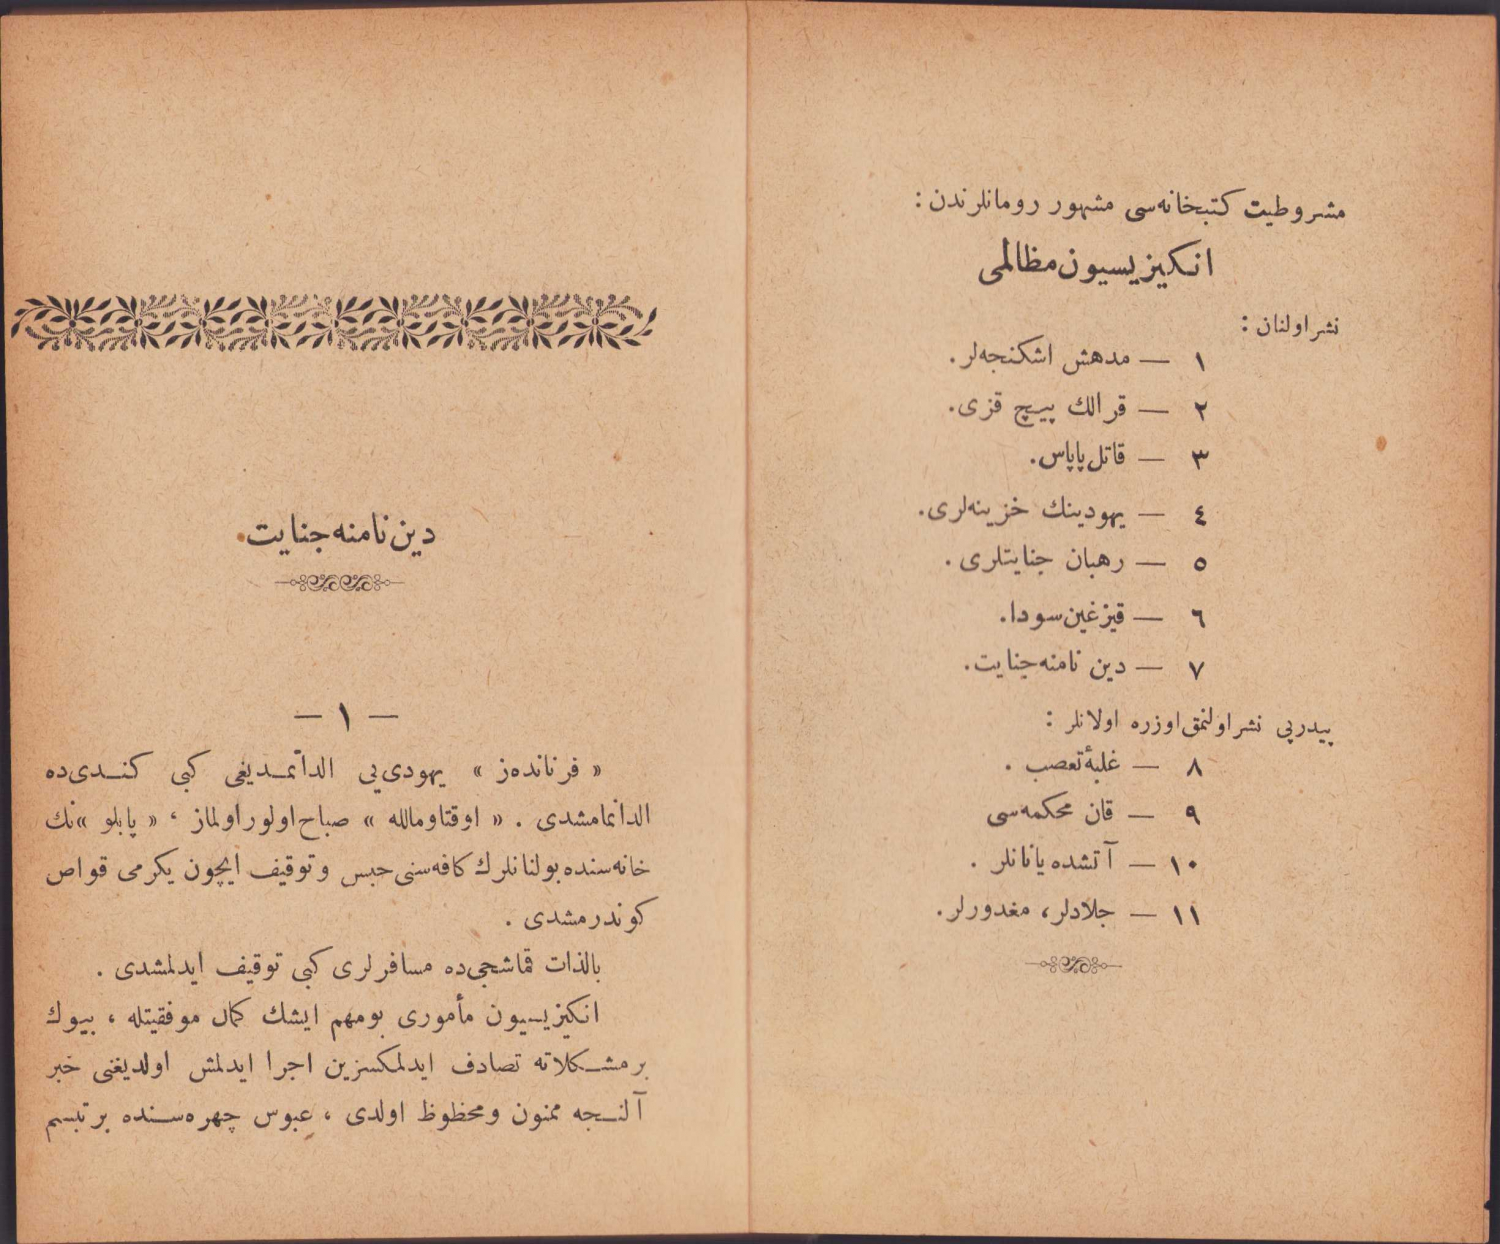 مشروطيت كتبخانه‌سى مشهور رومانلرندن :
انكيزيسيون مظالمى
نشر اولنان :
١ — مدهش اشكنجه‌لر.
٢ — قرالك پيچ قزى.
٣ — قاتل پاپاس.
٤ — يهودينك خزينه‌لرى.
٥ — رهبان جنايتلرى .
٦ — قيزغين سودا.
٧ — دين نامنه جنايت.
پيدرپى نشر اولنمق اوزره اولانلر :
٨ — غلبۀ تعصب .
٩ — قان محكمه‌سى
١٠ — آتشده يانانلر .
١١ — جلادلر، مغدورلر.
دين نامنه جنايت.
— ١ —
« فرنانده‌ز » يهودى‌يى الداتمـديغى كبى كنـدى‌ده
الدانمامشدى . « اوقتاومالله » صباح اولور اولماز ، « پابلو »نك
خانه‌سنده بولنانلرك كافه‌سنى حبس و توقيف ايچون يكرمى قواص
كوندرمشدى .
بالذات قماشجى‌ده مسافرلرى كبى توقيف ايدلمشدى .
انكيزيسيون مأمورى بومهم ايشك كمال موفقيتله ، بيوك
بر مشـكلاته تصادف ايدلمكسزين اجرا ايدلمش اولديغنى خبر
آلنـجه ممنون و محظوظ اولدى ، عبوس چهره‌سنده بر تبسم